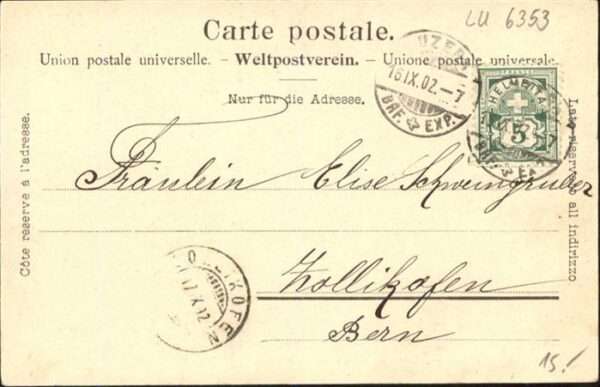 Carte postale.
LU 6353
Union postale universelle. - Weltpostverein. - Unione postale universale.
Nur für die Adresse.
LUZERN
16.IX.02.-7
BRF. EXP.
HELVETIA
5
Côte réservé à l'adresse.
Lato riservato all indirizzo
Fräulein Elise Schweingruber
Zollikofen
Bern
ZOLLIKOFEN
15.!